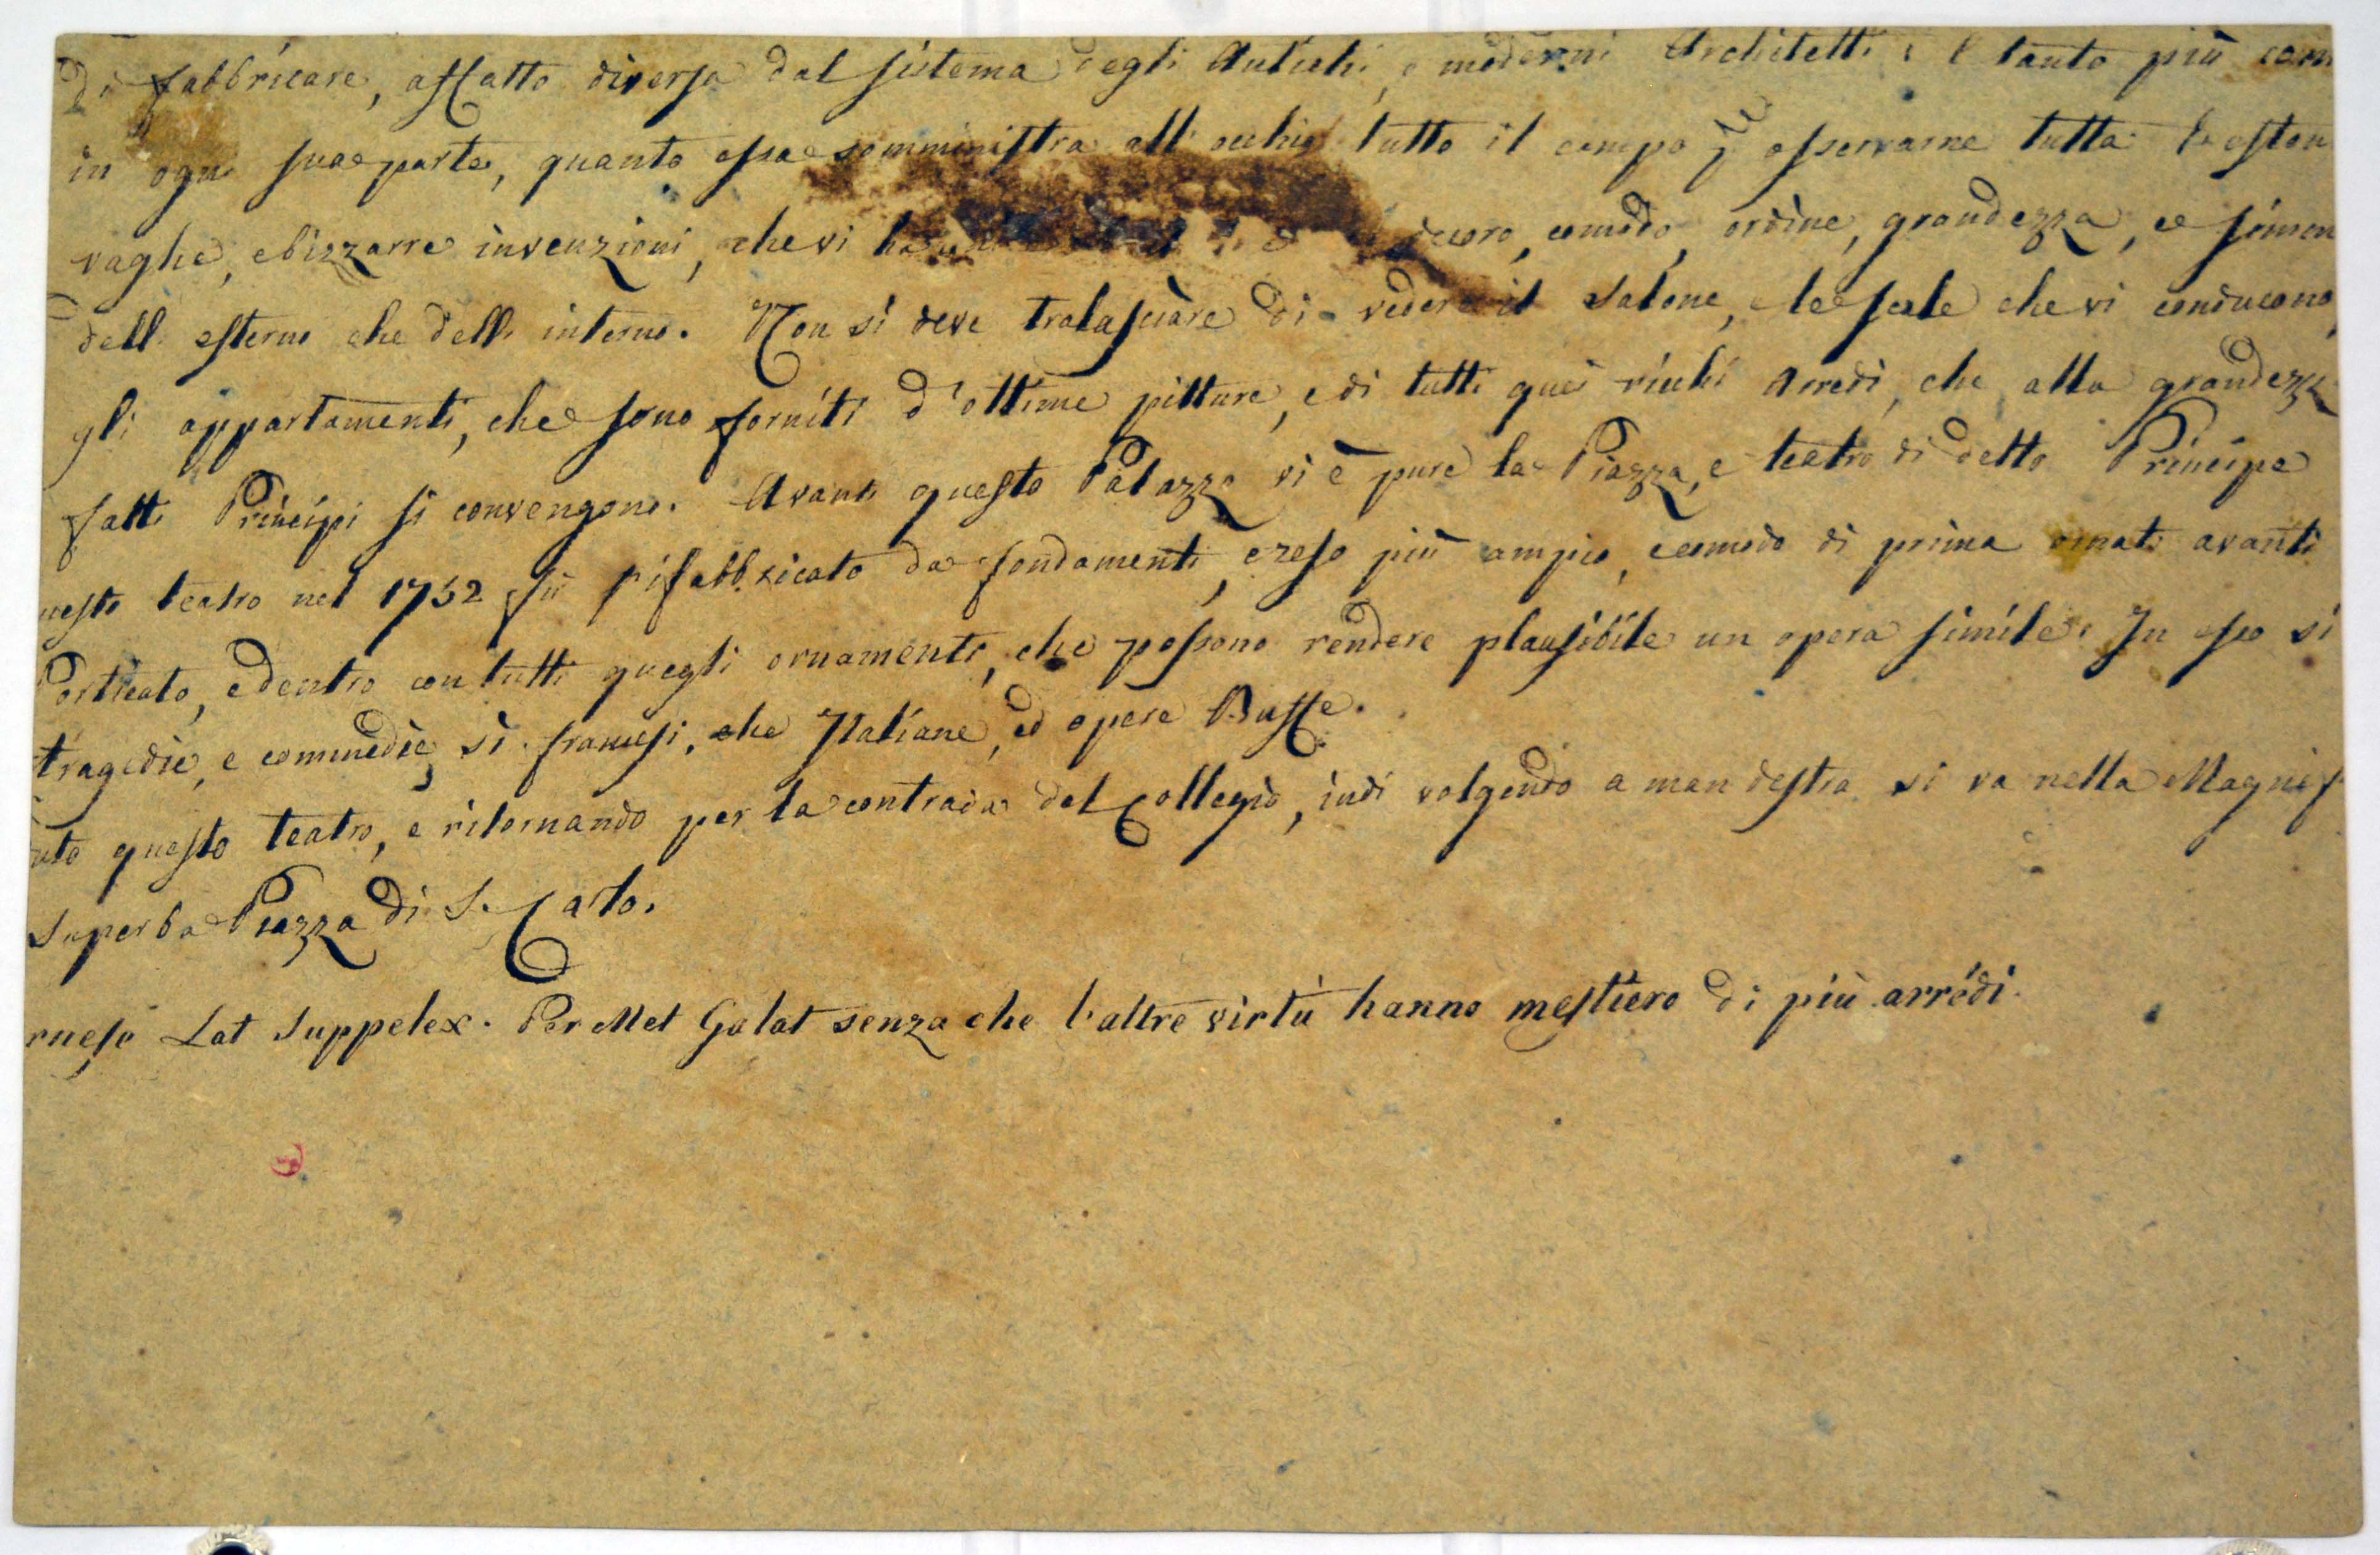 di fabbricare, affatto diverso dal sistema degli Antichi, e moderni Architetti: e tanto più com
in ogni sua parte, quanto essa somministra all' occhio tutto il campo osservarne tutta l' esten
vaghe, e bizzarre invenzioni, che vi decoro, comodo, ordine, grandezza, e simm
dell' esterno che dell' interno. Non si deve tralasciare di vedere il Salone, le scale che vi conducono,
gli appartamenti, che sono forniti d'ottime pitture, e di tutti que' richi Arredi, che alla grandezz
fatti Principi si convengono. Avanti questo Palazzo vi è pure la Piazza, e teatro di detto Principe
uesto teatro nel 1752 fù rifabbricato da fondamenti, e reso più ampio, e comodo di prima ornato avanti
Porticato, e dentro con tutti quegli ornamenti, che possono rendere plausibile un opera simile. In esso si
tragedie, e commedie, sì francesi, che Italiane, ed opere Buffe.
uto questo teatro, e ritornando per la contrada del Collegio, indi volgendo a man destra si va nella Magnif
Superba Piazza di S. Carlo.
rnese Lat Suppelex. Per Met Galat senza che l'altre virtù hanno mestiero di più arrédi.